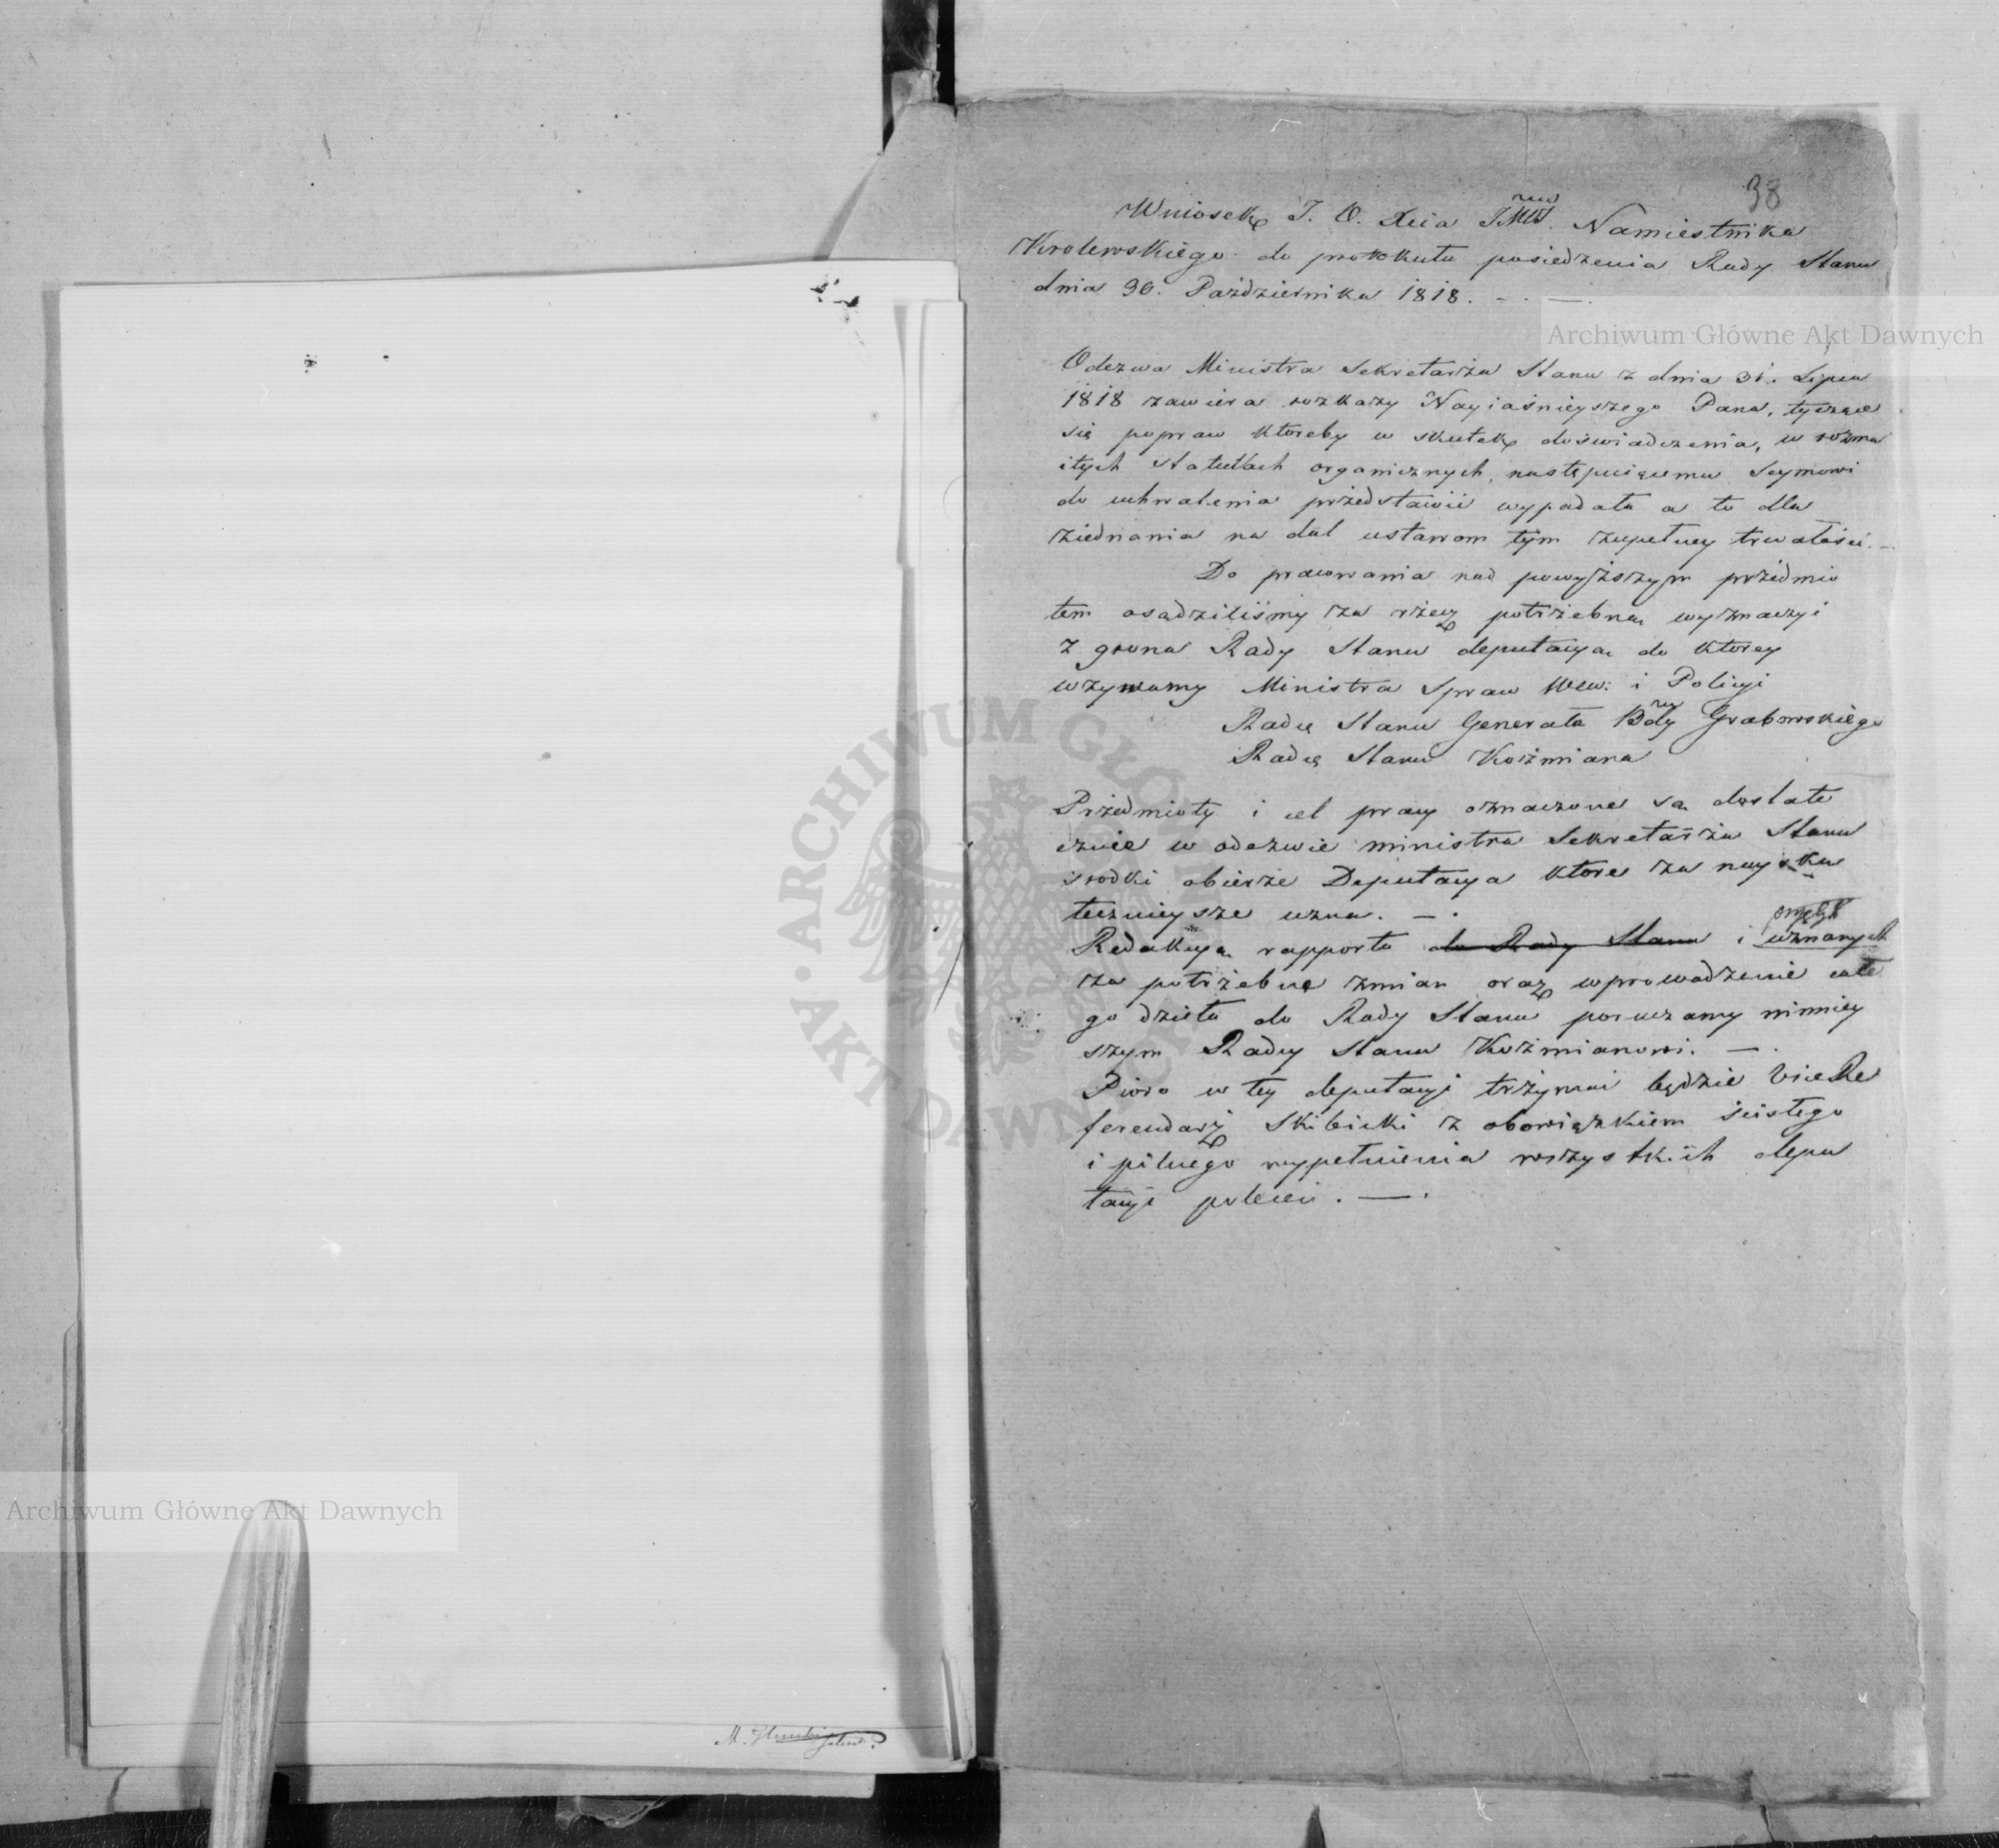 38
Wniosek J. O. Xcia JMci Namiestnika
Krolewskiego do protokułu posiedzenia Rady Stanu
dnia 30. Października 1818. — . —
Archiwum Główne Akt Dawnych
Odezwa Ministra Sekretarza Stanu z dnia 31. Lipca
1818 zawiera rozkazy Nayiaśnieyszego Pana, tyczące
się popraw ktoreby w skutek doświadczenia, w rozma
itych statutach organicznych, następuiącemu Seymowi
do uchwalenia przedstawić wypadało a to dla
ziednania na dal ustawom tym zupełney trwałości. —
Do pracowania nad powyższym przedmio
tem osądziliśmy za rzecz potrzebną wyznaczyć
z grona Rady Stanu deputacyą do ktorey
wzywamy Ministra Spraw Wew: i Policyi
Radcę Stanu Generała Bdy Grabowskiego
Radcę Stanu Koźmiana
Przedmioty i cel pracy oznaczone są dostate
cznie w odezwie ministra Sekretarza Stanu
srodki obierze Deputacya ktore za naysku
tecznieysze uzna. — .
Redakcyą rapportu do Rady Stanu i uznanych
za potrzebne zmian oraz wprowadzenie całe
go dzieła do Rady Stanu poruczamy ninniey
szym Radcy Stanu Koźmianowi. — .
Pioro w tey deputacyi trzymać będzie Vice Re
ferendarz Skibicki z obowiązkiem ścisłego
i pilnego wypełnienia wszystkich depu
tacyi poleceń . — .
ARCHIWUM GŁÓWNE AKT DAWNYCH
Archiwum Główne Akt Dawnych